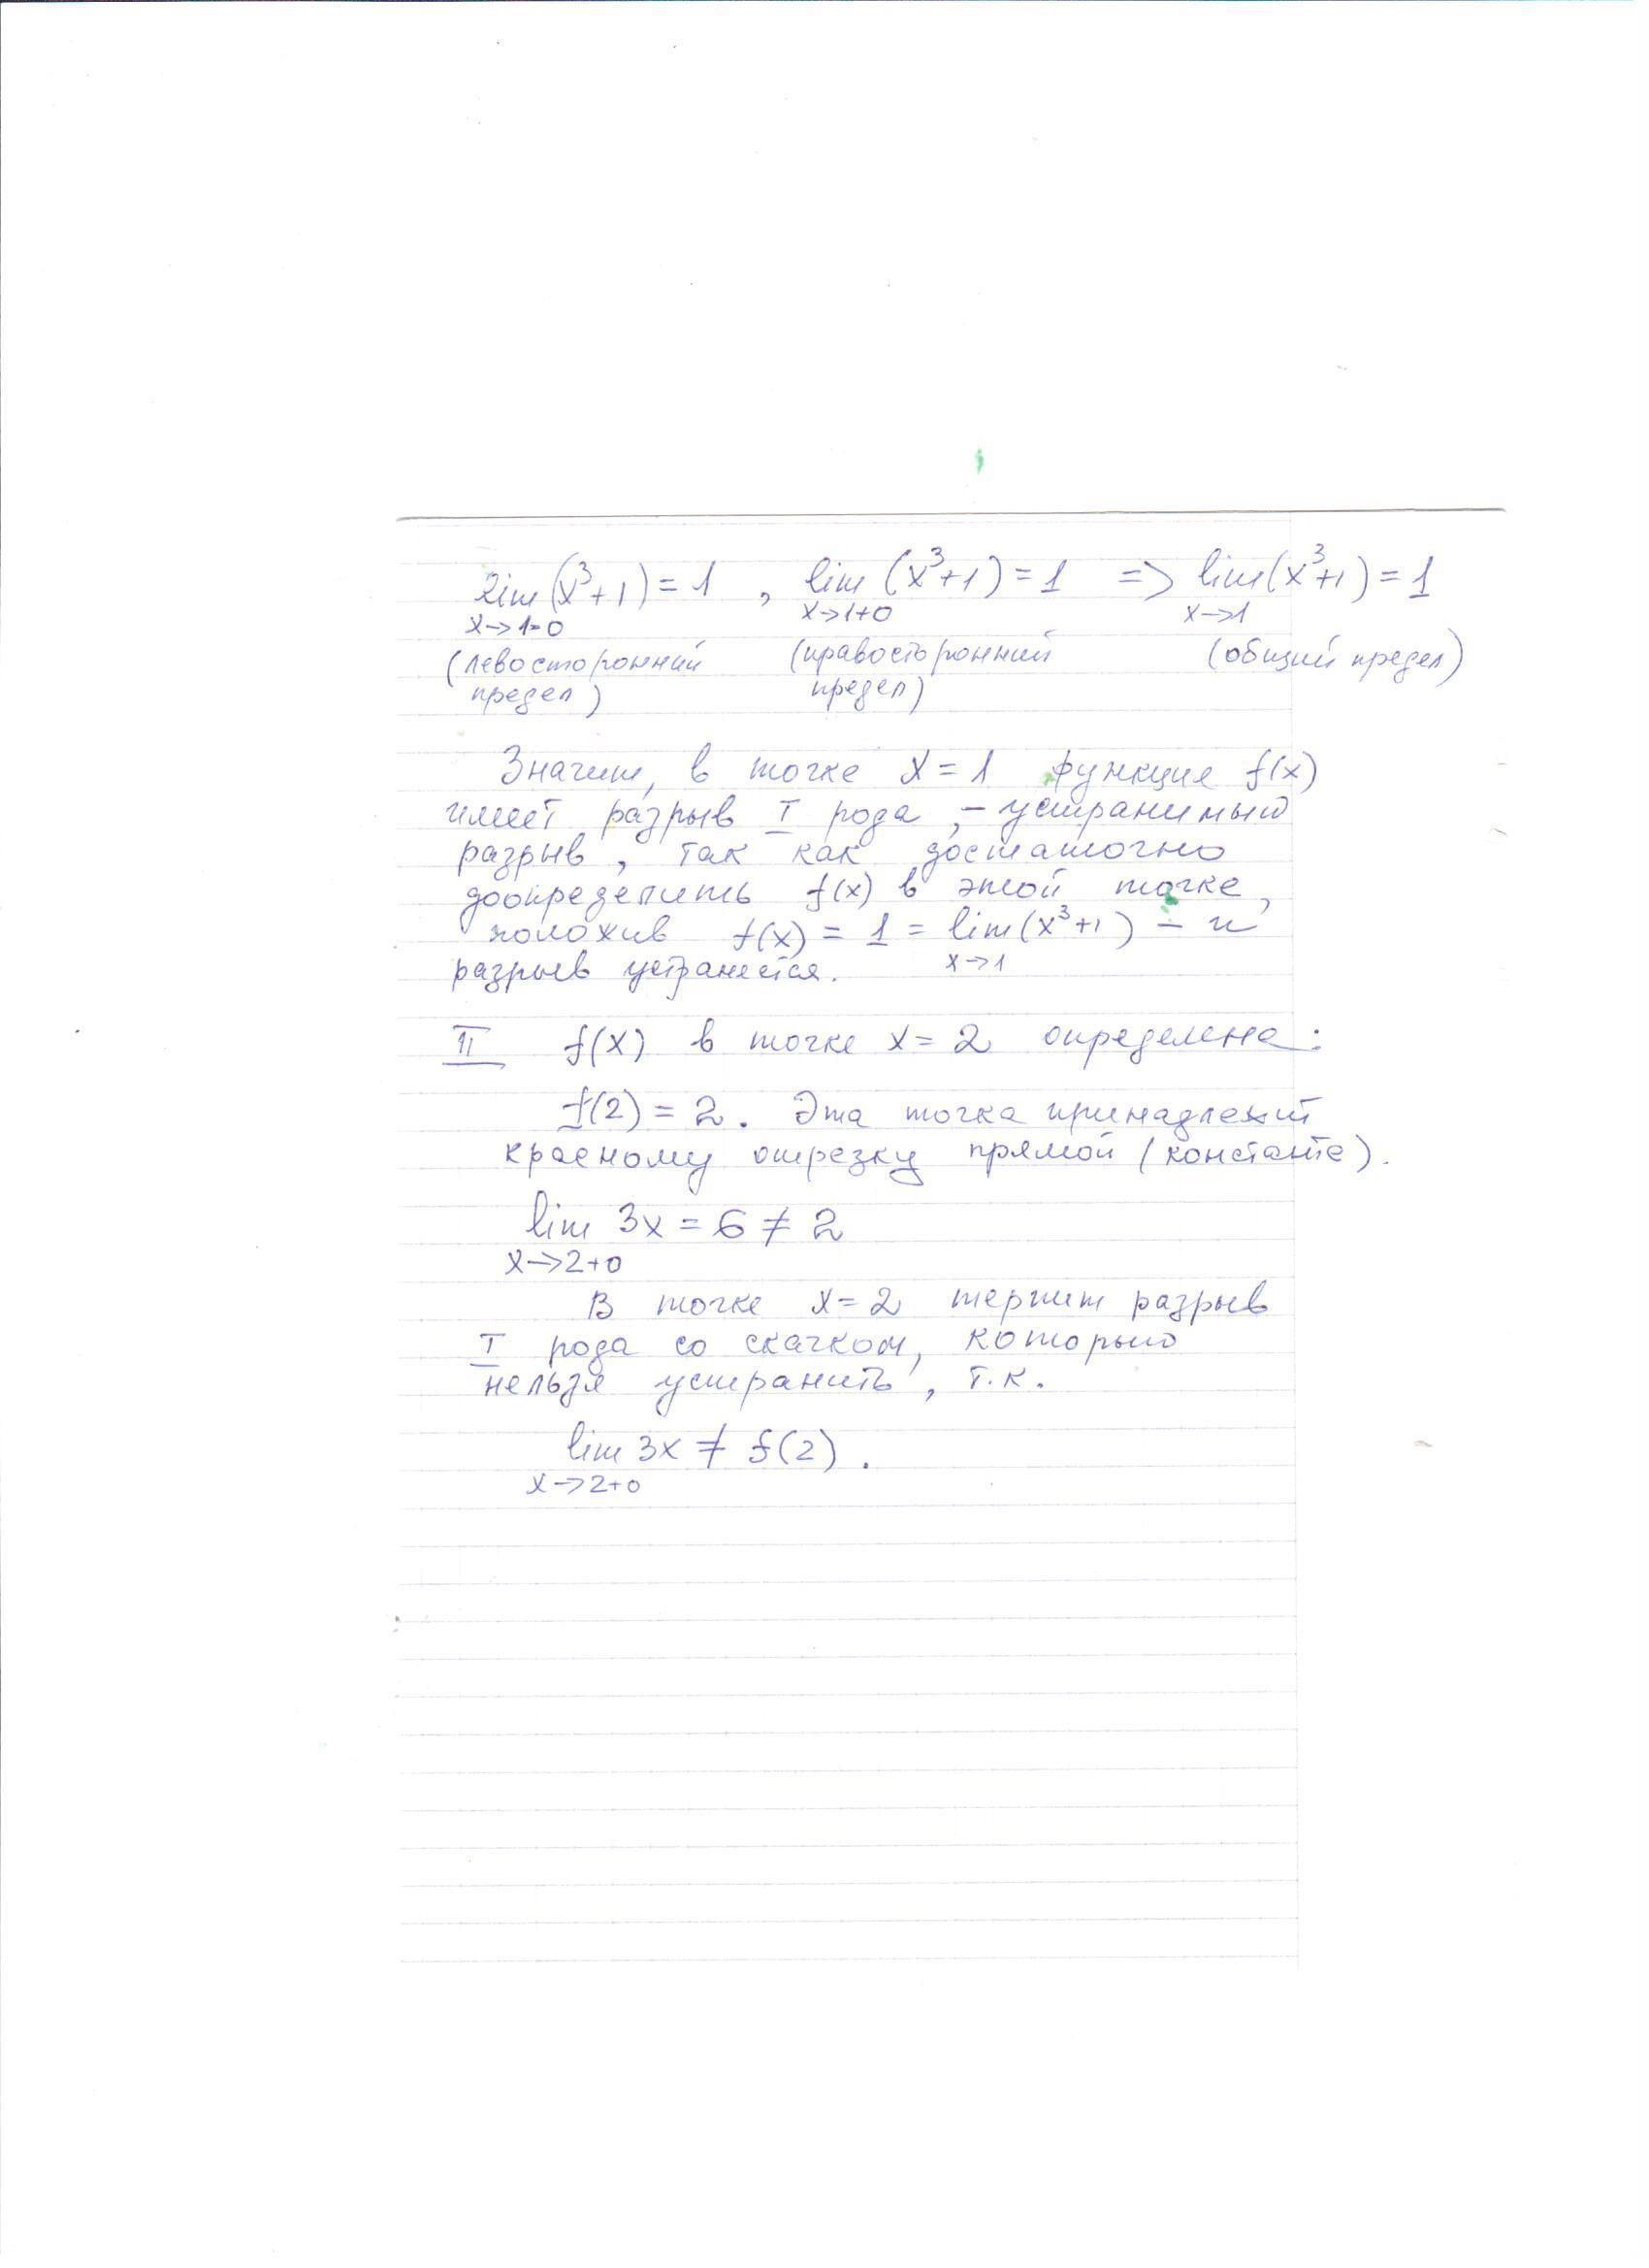 lim(x³+1) = 1 , lim (x³+1) = 1 => lim(x³+1) = 1
x->1-0 x->1+0 x->1
(левосторонний (правосторонний (общий предел)
предел) предел)
Значит, в точке x = 1 функция f(x)
имеет разрыв I рода, - устранимый
разрыв, так как достаточно
доопределить f(x) в этой точке,
положив f(x) = 1 = lim(x³+1) - и
x->1
разрыв устранется.
II f(x) в точке x = 2 определена:
f(2) = 2. Эта точка принадлежит
красному отрезку прямой (константе).
lim 3x = 6 ≠ 2
x->2+0
В точке x = 2 терпит разрыв
I рода со скачком, который
нельзя устранить, т.к.
lim 3x ≠ f(2).
x->2+0